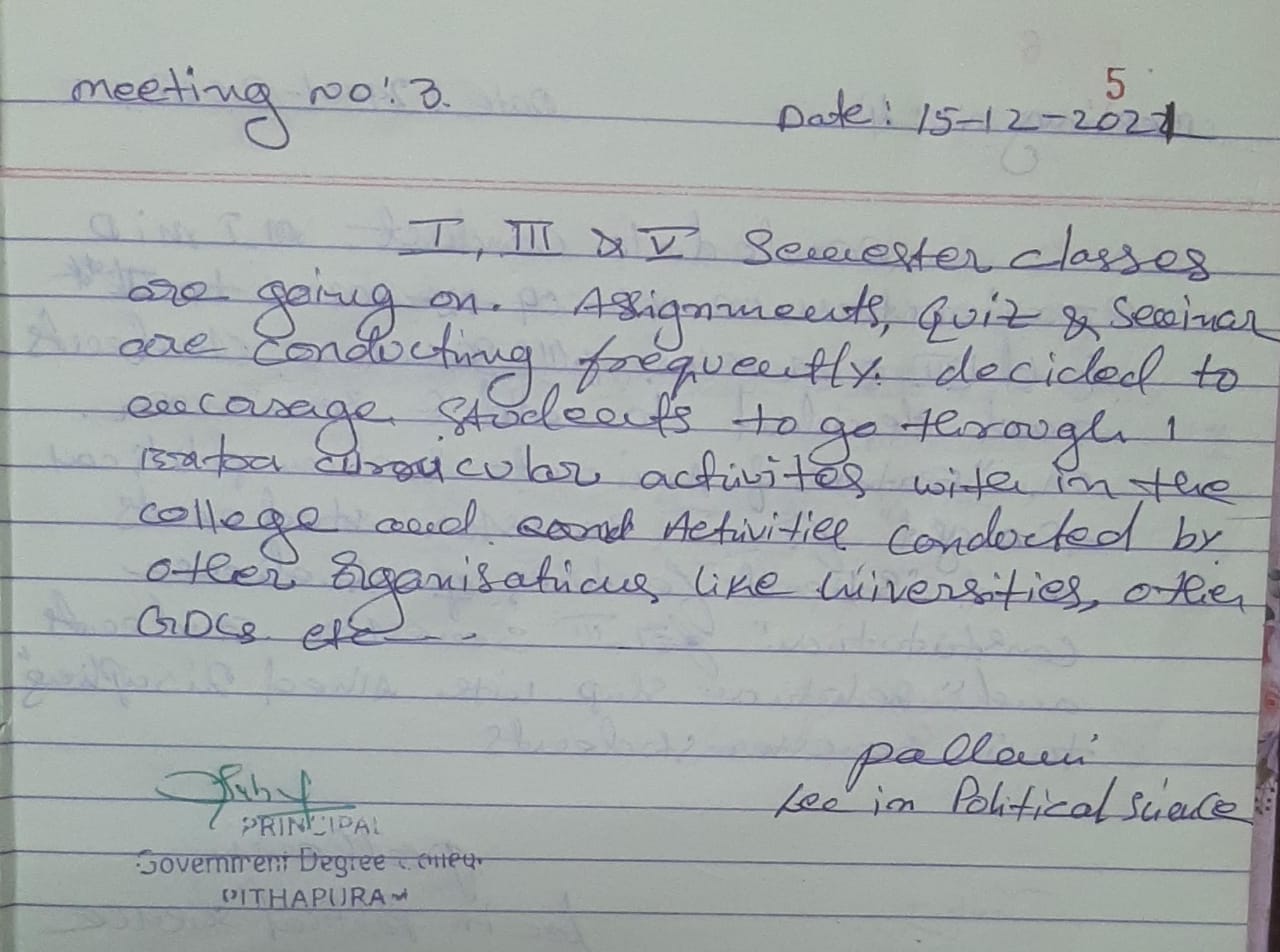 5
meeting no: 3.
Date: 15-12-2021
I, III & V Semester classes
are going on. Assignments, Quiz & Seminar
are conducting frequently. decided to
encourage students to go through
curricular activites with in the
college and Activities conducted by
other Organisations like Universities, other
GDCs etc
pallavi
Lec in Political Science
PRINCIPAL
Government Degree College
PITHAPURAM